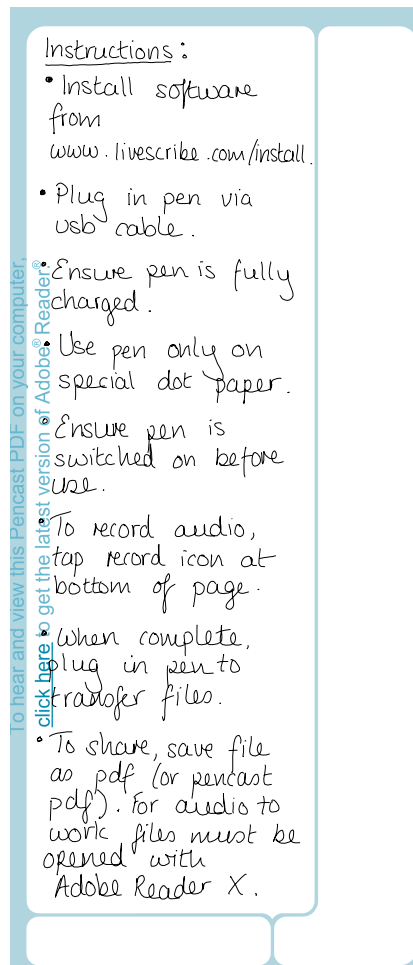 Instructions :
• Install software
from
www.livescribe.com/install.
• Plug in pen via
usb cable.
• Ensure pen is fully
charged.
• Use pen only on
special dot paper.
• Ensure pen is
switched on before
use.
• To record audio,
tap record icon at
bottom of page.
• When complete,
plug in pen to
transfer files.
• To share, save file
as pdf (or pencast
pdf). For audio to
work files must be
opened with
Adobe Reader X.
To hear and view this Pencast PDF on your computer,
click here to get the latest version of Adobe® Reader®.